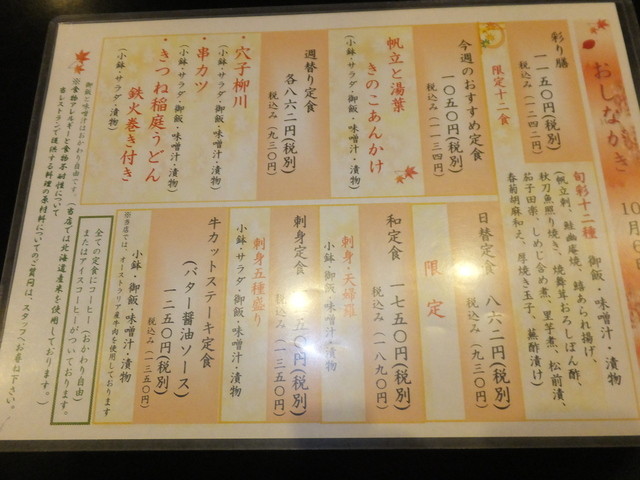 おしながき
10月
彩り膳
一一五〇円(税別)
税込み(一二四二円)
限定十二食
旬彩十二種 御飯・味噌汁・漬物
秋刀魚照り焼き、焼舞茸おろしぽん酢、
茄子田楽、しめじ含め煮、里芋煮、松前漬、
春菊胡麻和え、厚焼き玉子、
今週のおすすめ定食
一〇五〇円(税別)
税込み(一一三四円)
帆立と湯葉
きのこあんかけ
(小鉢・サラダ・御飯・味噌汁・漬物)
週替り定食
各八六二円(税別)
税込み(九三〇円)
・穴子柳川
(小鉢・サラダ・御飯・味噌汁・漬物)
・串カツ
(小鉢・サラダ・御飯・味噌汁・漬物)
・きつね稲庭うどん
鉄火巻き付き
(小鉢・サラダ・漬物)
日替定食 八六二円(税別)
税込み(九三〇円)
限定
和定食 一七五〇円(税別)
税込み(一八九〇円)
刺身・天婦羅
小鉢・サラダ・御飯・味噌汁・漬物
刺身定食
五〇円(税別)
税込み(一三五〇円)
刺身五種盛り
小鉢・サラダ・御飯・味噌汁・漬物
牛カットステーキ定食
(バター醤油ソース)
一二五〇円(税別)
税込み(一三五〇円)
小鉢・御飯・味噌汁・漬物
※当店では、オーストラリア産牛肉を使用しております
全ての定食にコーヒー(おかわり自由)
またはアイスコーヒーがついております。
御飯と味噌汁はおかわり自由です。(当店では北海道産米を使用しております。)
※食物アレルギーと食物不耐性について
当レストランで提供する料理の原材料についてのご質問は、スタッフへお尋ね下さい。